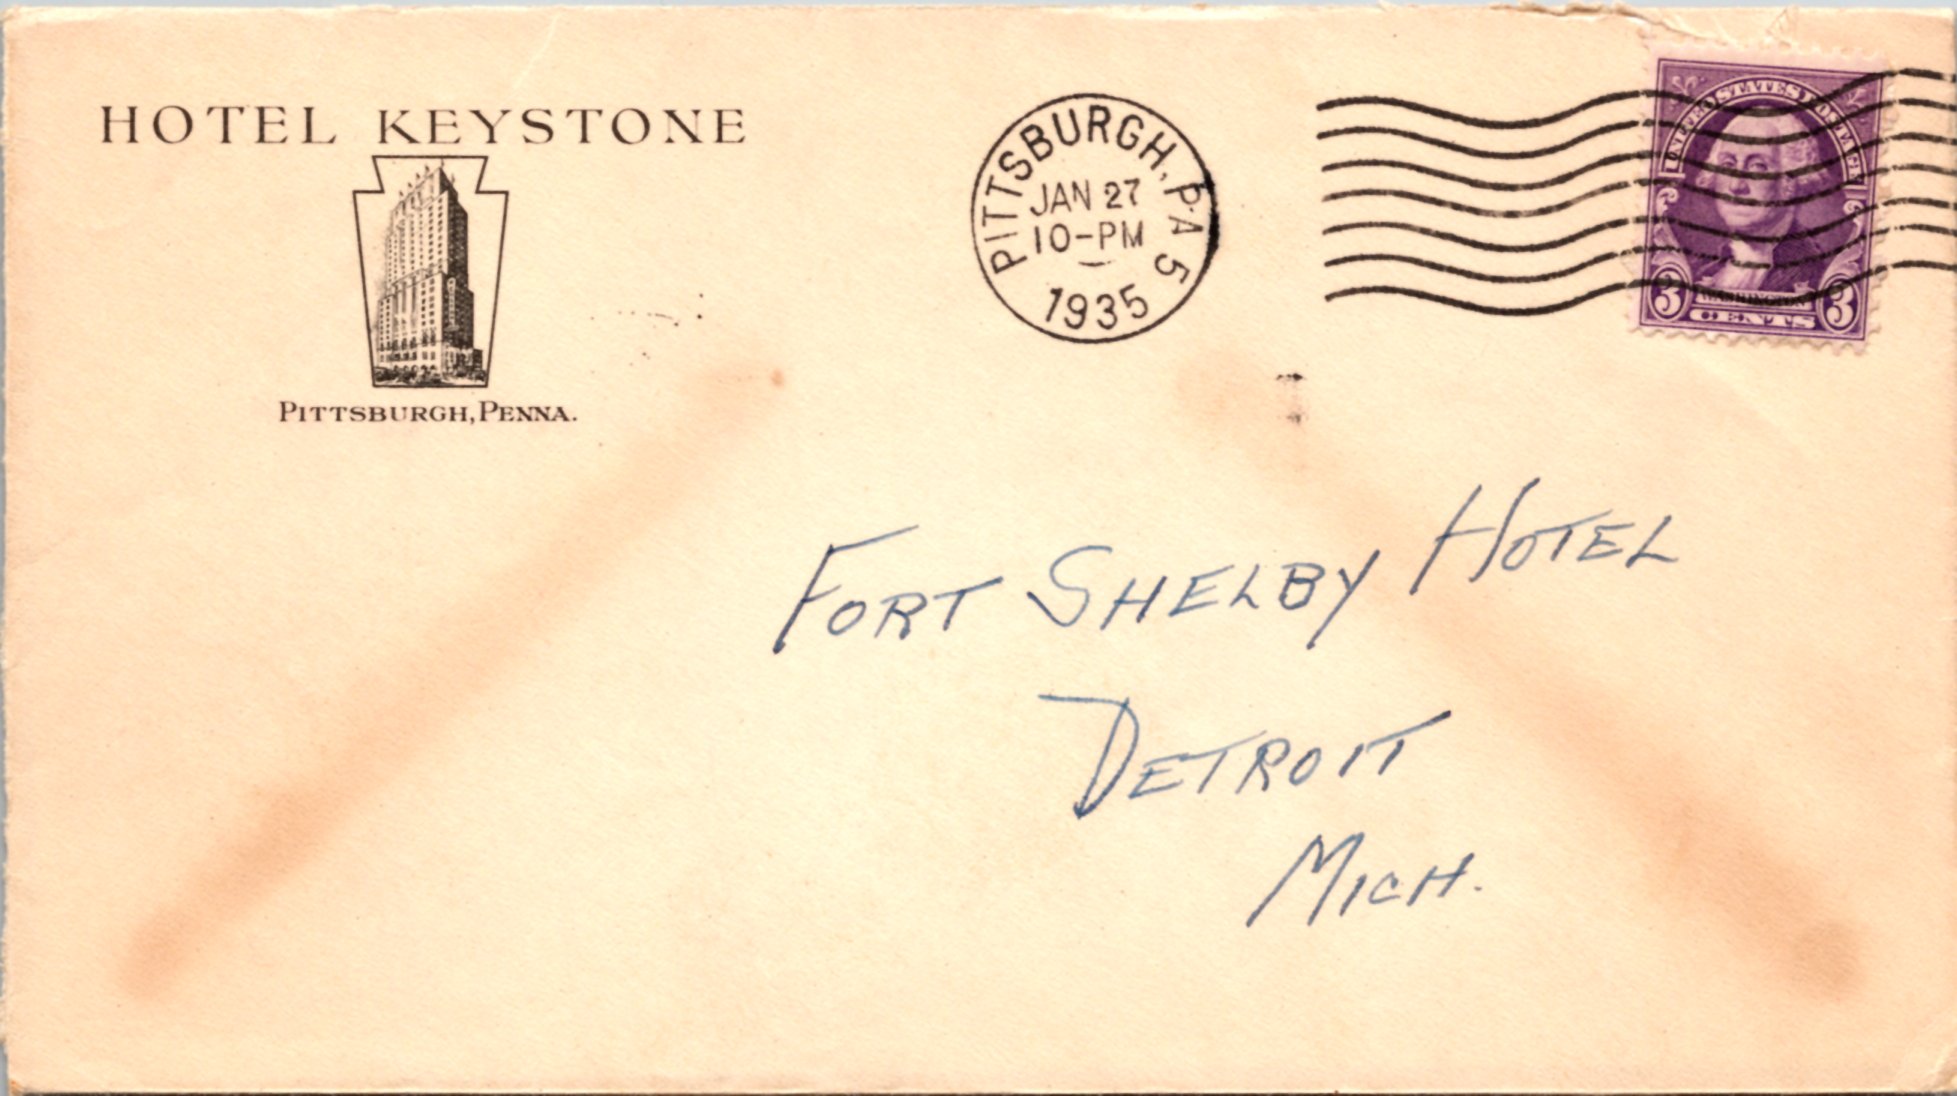 HOTEL KEYSTONE
PITTSBURGH, PENNA.
PITTSBURGH, PA 5
JAN 27
10-PM
1935
UNITED STATES POSTAGE
WASHINGTON
3 CENTS 3
FORT SHELBY HOTEL
DETROIT
MICH.